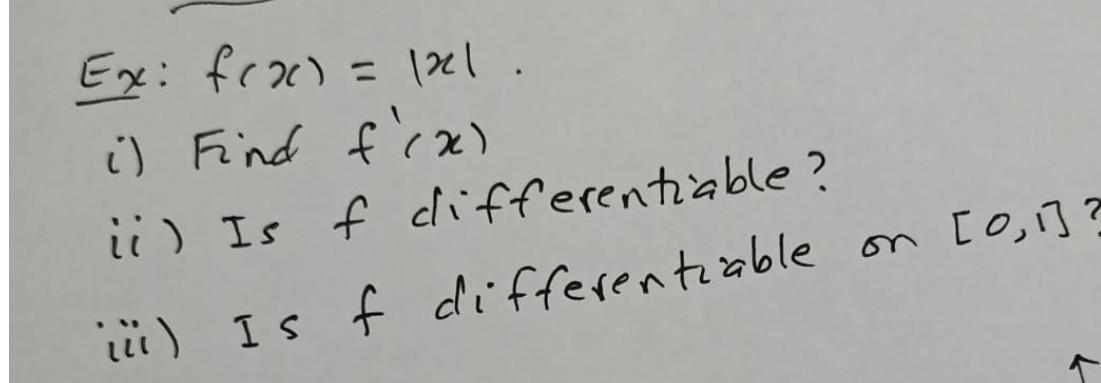 Ex: f(x) = |x| .
i) Find f'(x)
ii) Is f differentiable?
iii) Is f differentiable on [0,1]?